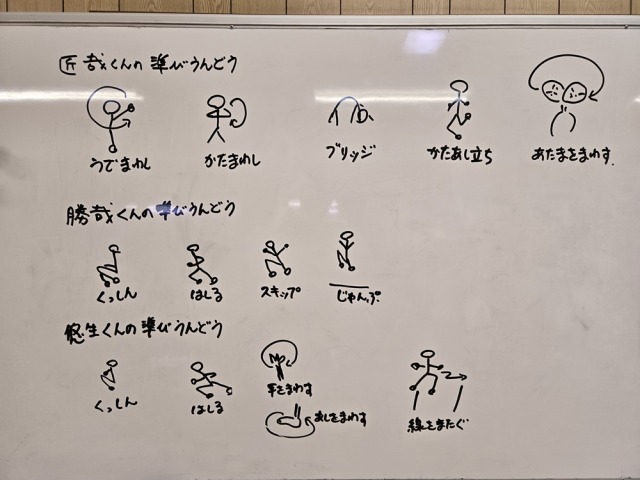 匠哉くんの準びうんどう
うでまわし かたまわし ブリッジ かたあし立ち あたまをまわす
勝哉くんの準びうんどう
くっしん はしる スキップ じゃんぷ
悠生くんの準びうんどう
くっしん はしる 手をまわす 線をまたぐ
あしをまわす